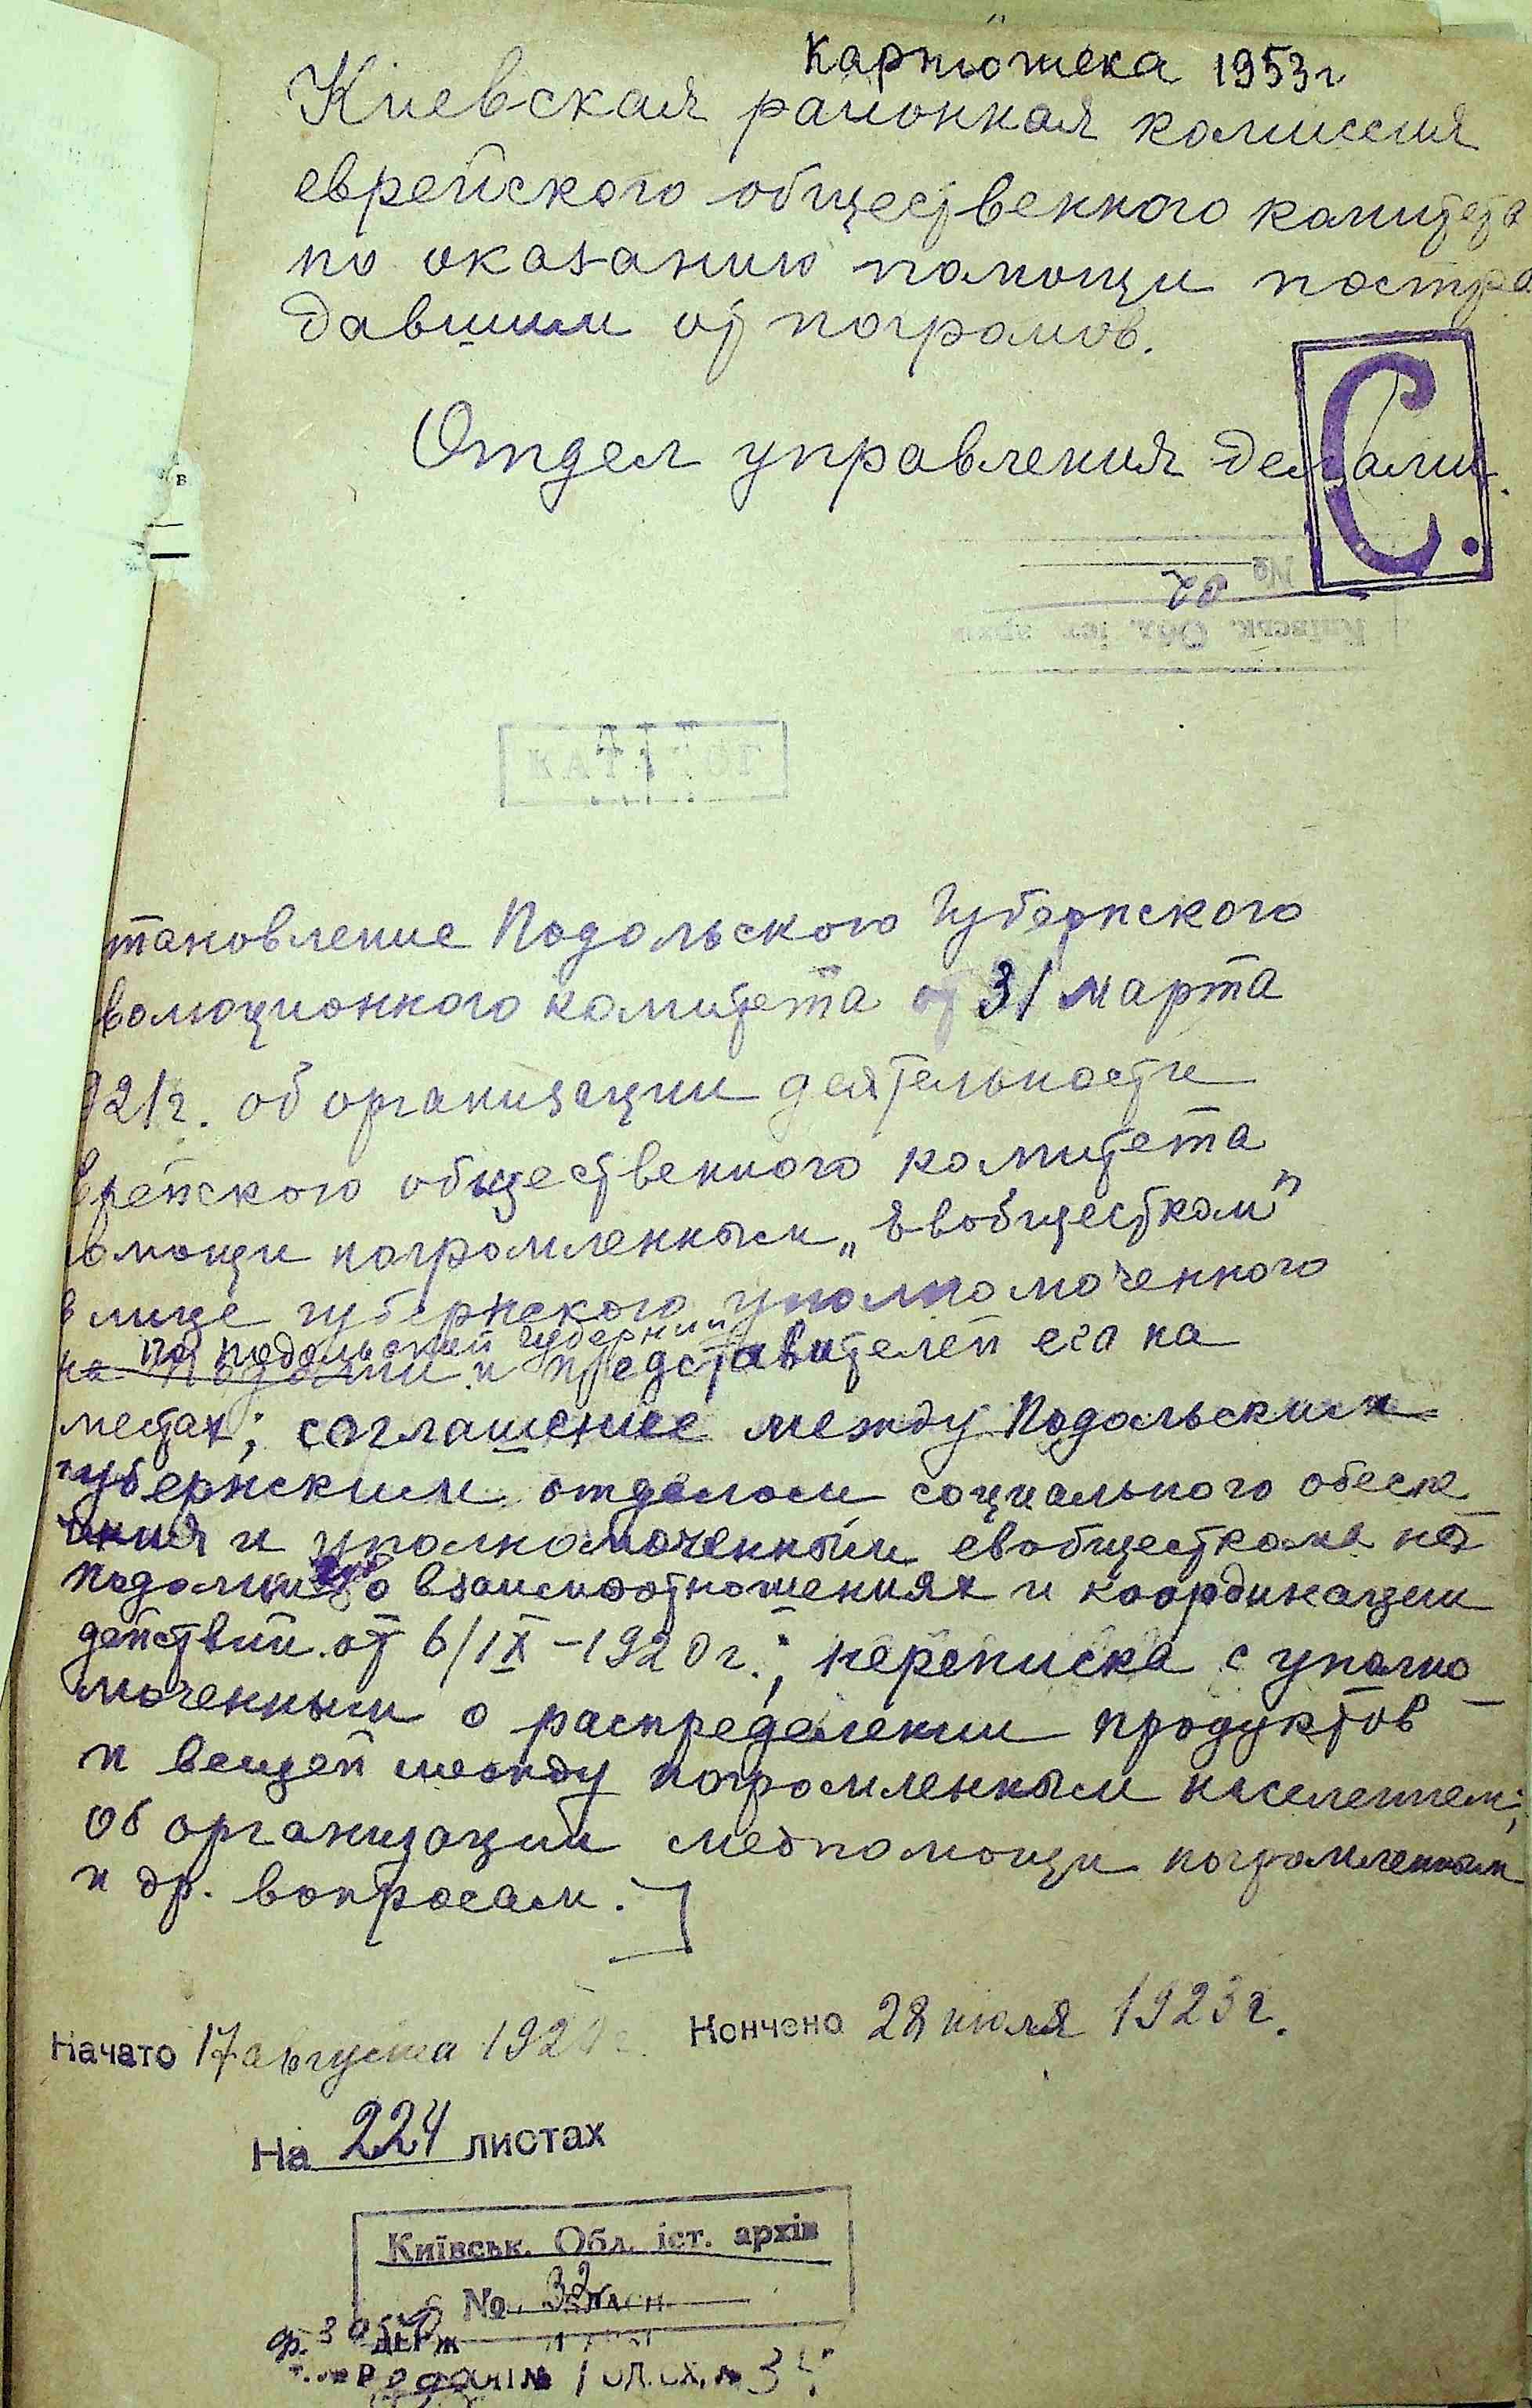 Картотека 1953 г
Киевская районная комиссия
еврейского общественного комитета
по оказанию помощи постра
давшим от погромов.
Отдел управления делами.
С.
№
Київськ. Обл. іст. архів
тановление Подольского Губернского
волюционного комитета от 31 марта
921г. об организации деятельности
врейского общественного комитета
омощи погромленным „Евобщестком"
в лице губернского уполномоченного
по подольской губернии
на Подолии и представителей его на
местах; соглашение между Подольским
губернским отделом социального обеспе
чения и уполномоченным евобщесткома на
Подолии о взаимоотношениях и координации
действий от 6/IX-1920г.; переписка с уполно
моченным о распределении продуктов
и вещей между погромленным населением;
об организации медпомощи погромленным
и др. вопросам.
Начато 17 августа 192 г. Кончено 28 июля 1923г.
На 224 листах
Київськ. Обл. іст. архів
№ 32
ДЕРЖ